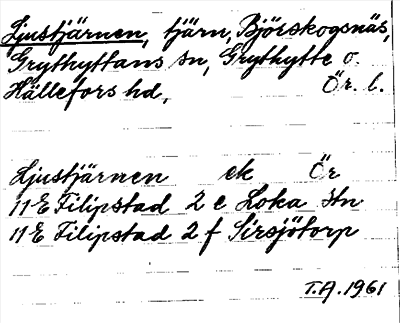 Ljustjärnen, tjärn, Björskogsnäs,
Grythyttans sn, Grythytte o.
Hällefors hd, Ör. l.
Ljustjärnen ek Ör
11E Filipstad 2 e Loka stn
11E Filipstad 2 f Sirsjötorp
T.A. 1961